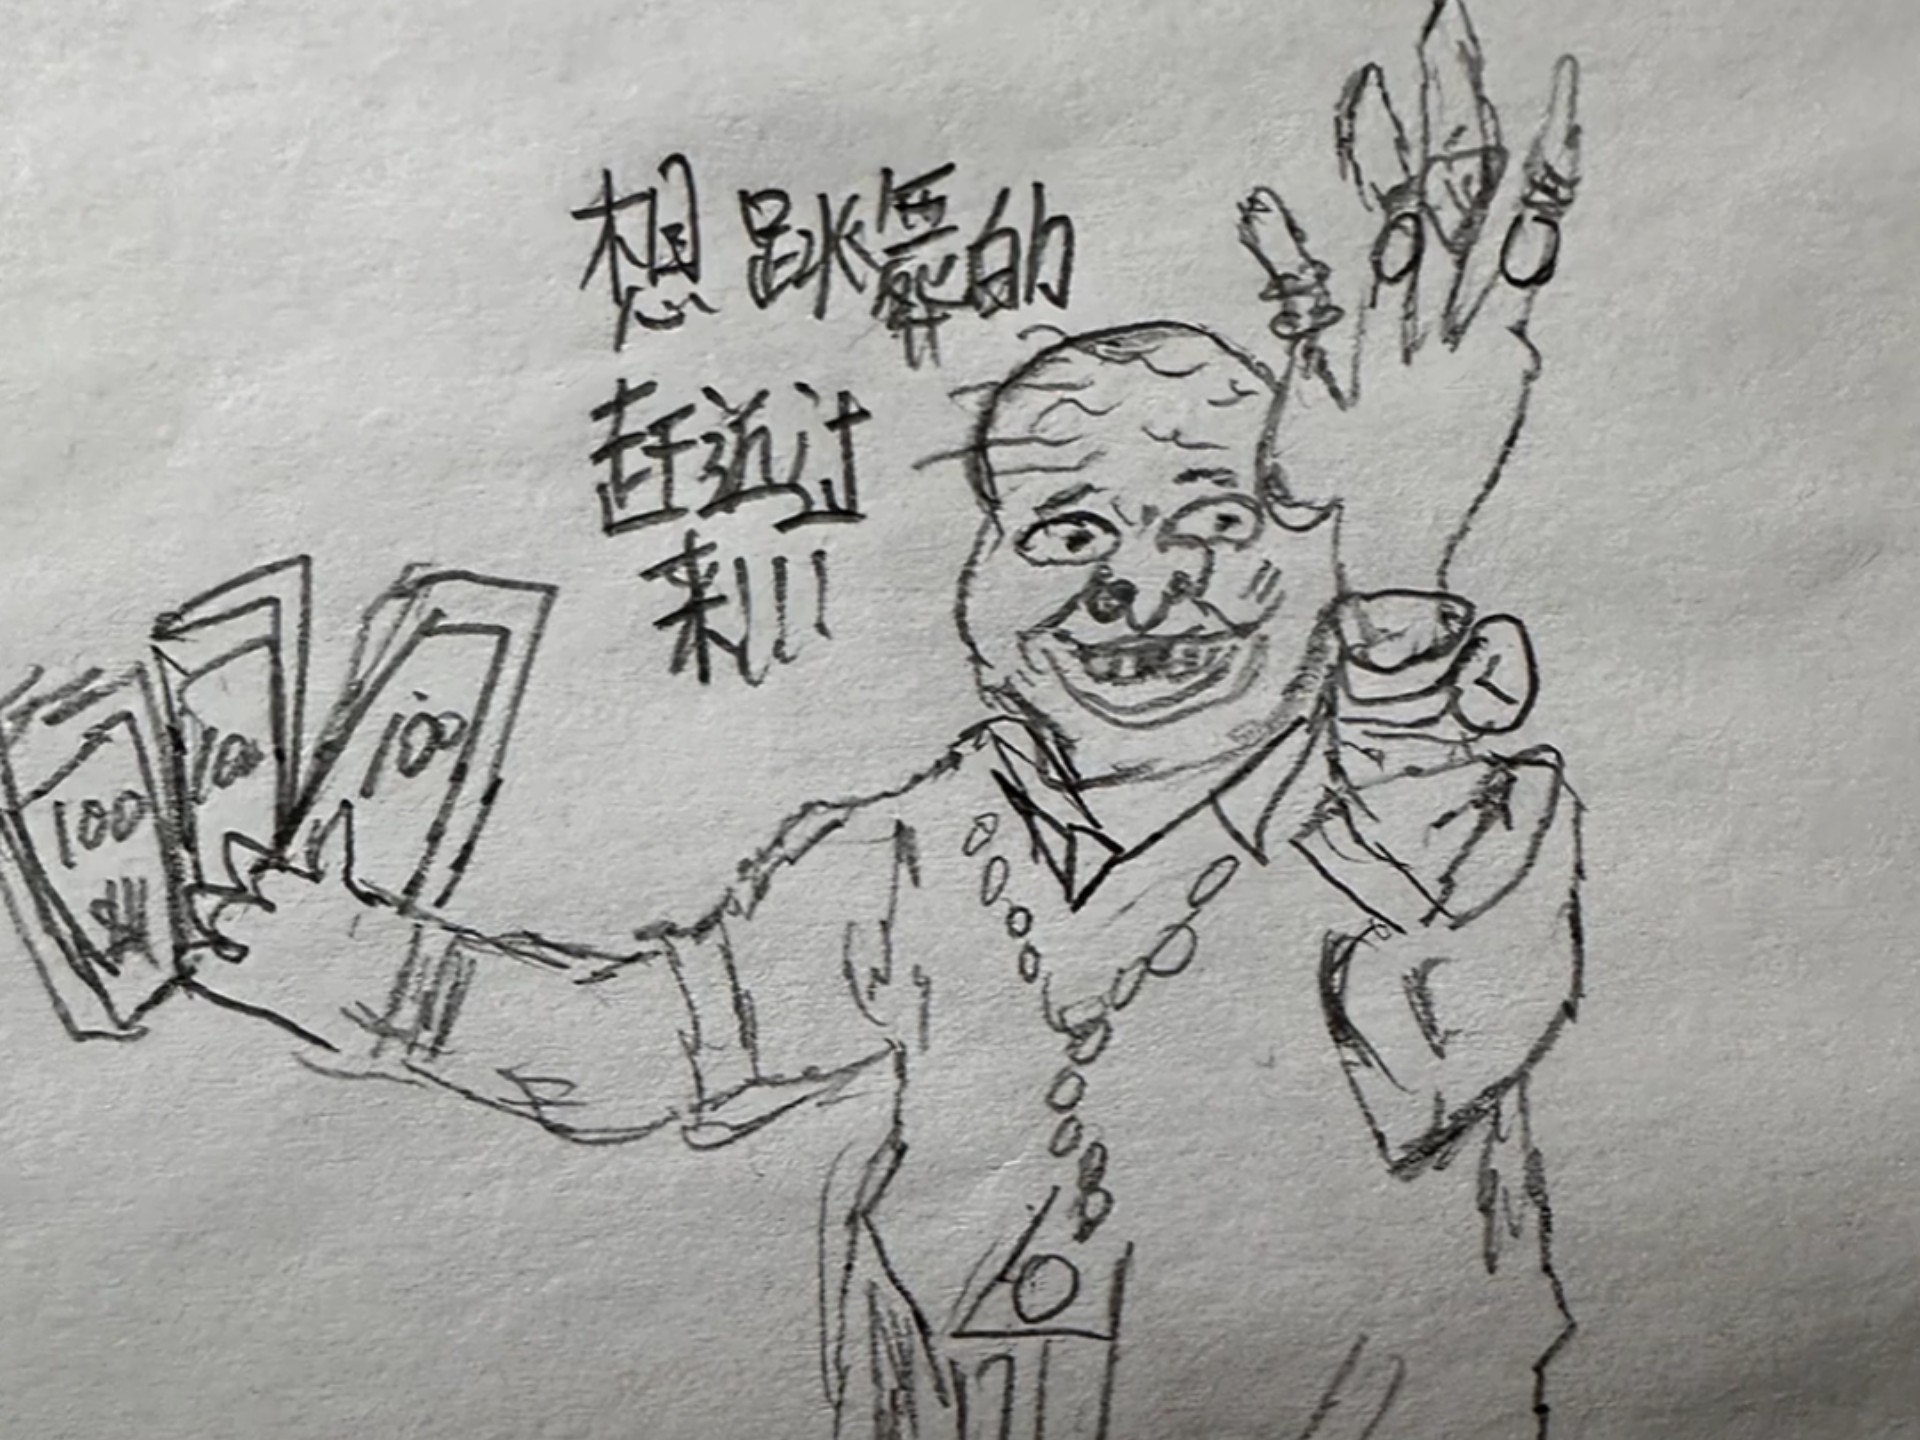 想跳舞的
赶近过
来!!!
100
100
100